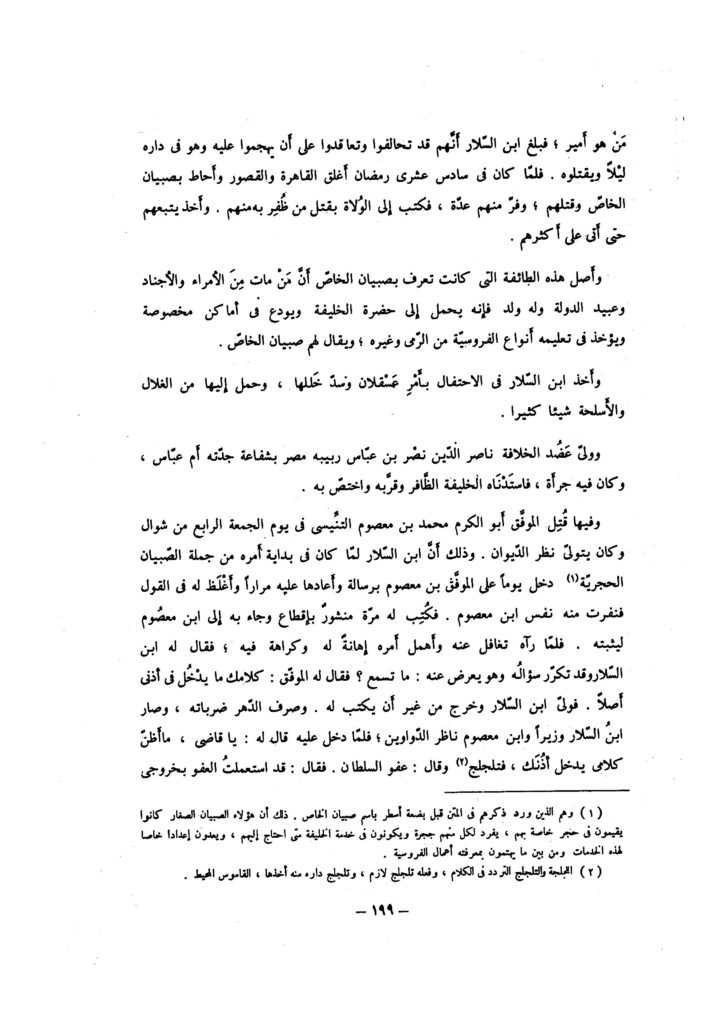 مَنْ هو أمير ؛ فبلغ ابن السّلار أنَّهم قد تحالفوا وتعاقدوا على أن يهجموا عليه وهو فى داره
ليْلاً ويقتلوه . فلمّا كان فى سادس عشرى رمضان أغلق القاهرة والقصور وأحاط بصبيان
الخاصّ وقتلهم ؛ وفرّ منهم عدّة ، فكتب إلى الوُلاة بقتل من ظُفِر به منهم . وأخذ يتبعهم
حتى أتى على أكثرهم .
وأصل هذه الطائفة التى كانت تعرف بصبيان الخاصّ أنَّ مَنْ مات مِنَ الأمراء والأجناد
وعبيد الدولة وله ولد فإنه يحمل إلى حضرة الخليفة ويودع فى أماكن مخصوصة
ويؤخذ فى تعليمه أنواع الفروسيّة من الرّمى وغيره ؛ ويقال لهم صبيان الخاصّ .
وأخذ ابن السّلار فى الاحتفال بأَمْرِ عَسْقلان وسدّ خَللها ، وحمل إليها من الغلال
والأسلحة شيئا كثيرا .
وولىّ عَضُد الخلافة ناصر الدّين نصْر بن عبّاس ربيبه مصر بشفاعة جدّته أم عبّاس ،
وكان فيه جرأة ، فاستَدْنَاه الخليفة الظّافر وقرّبه واختصّ به .
وفيها قُتِل الموفّق أبو الكرم محمد بن معصوم التنِّيسى فى يوم الجمعة الرابع من شوال
وكان يتولىّ نظر الدّيوان . وذلك أنَّ ابن السّلار لمّا كان فى بداية أمره من جملة الصّبيان
الحجريّة(١) دخل يوماً على الموفَّق بن معصوم برسالة وأعادها عليه مراراً وأغْلَظ له فى القول
فنفرت منه نفس ابن معصوم . فكُتِب له مرّة منشورٌ بإقطاع وجاء به إلى ابن معصُوم
ليثبته . فلمّا رآه تغافل عنه وأهمل أمره إهانةً له وكراهة فيه ؛ فقال له ابن
السّلاروقد تكرّر سؤالُه وهو يعرض عنه : ما تسمع ؟ فقال له الموفّق : كلامك ما يدْخُل فى أذنى
أصلاً . فولىّ ابن السّلار وخرج من غير أن يكتب له . وصرف الدّهر ضرباته ، وصار
ابنُ السّلار وزيراً وابن معصوم ناظر الدّواوين ؛ فلمّا دخل عليه قال له : يا قاضى ، ماأظنّ
كلامى يدخل أذُنَك ، فتلجلج(٢) وقال : عفو السلطان . فقال : قد استعملتُ العفو بخروجى
(١) وهم الذين ورد ذكرهم فى المتن قبل بضعة أسطر باسم صبيان الخاص . ذلك أن هؤلاء الصبيان الصغار كانوا
يقيمون فى حجر خاصة بهم ، يفرد لكل منهم حجرة ويكونون فى خدمة الخليفة متى احتاج إليهم ، ويعدون إعدادا خاصا
لهذه الخدمات ومن بين ما يهتمون بمعرفته أعمال الفروسية .
(٢) اللجلجة والتلجلج التردد فى الكلام ، وفعله تلجلج لازم ، وتلجلج داره منه أخذها ، القاموس المحيط .
— ١٩٩ —